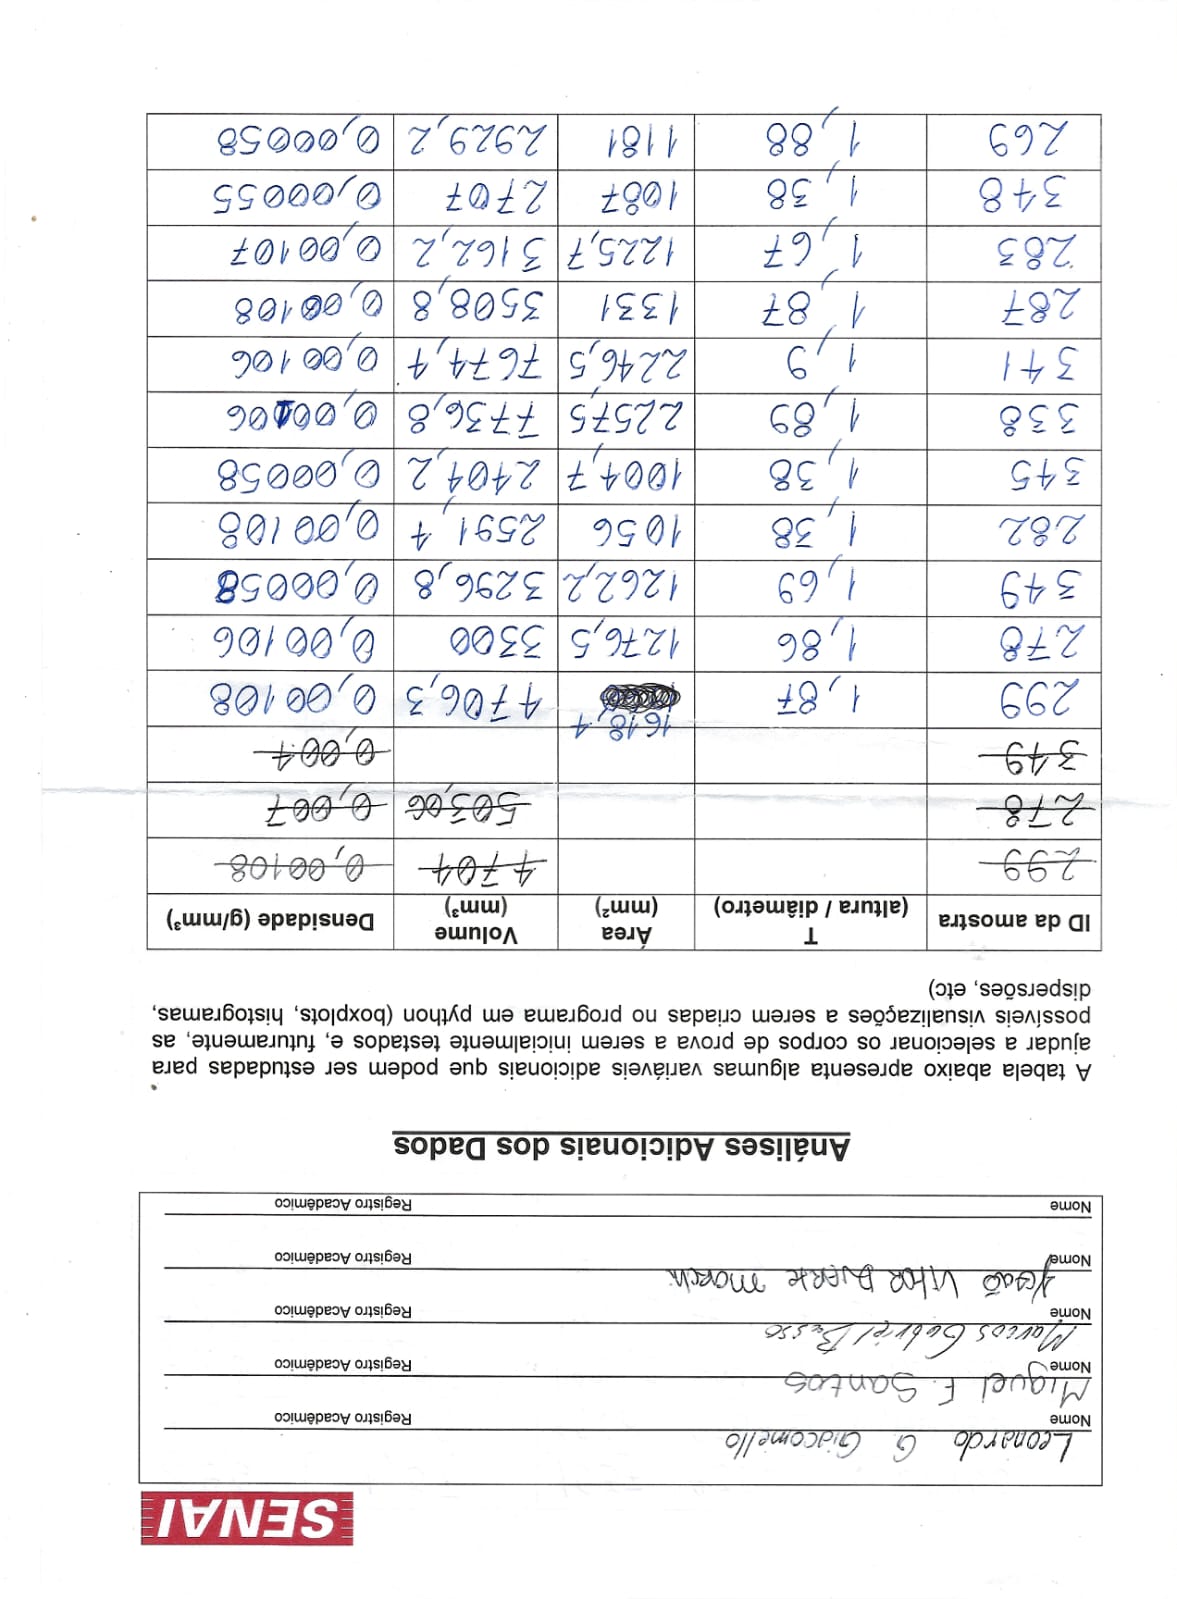 SENAI
Leonardo G. Giacomello
Nome Registro Acadêmico
Miguel F. Santos
Nome Registro Acadêmico
Marcos Gabriel Busso
Nome Registro Acadêmico
João Vitor Duarte Morch
Nome Registro Acadêmico
Nome Registro Acadêmico
Análises Adicionais dos Dados
A tabela abaixo apresenta algumas variáveis adicionais que podem ser estudadas para
ajudar a selecionar os corpos de prova a serem inicialmente testados e, futuramente, as
possíveis visualizações a serem criadas no programa em python (boxplots, histogramas,
dispersões, etc)
ID da amostra T (altura / diâmetro) Área (mm²) Volume (mm³) Densidade (g/mm³)
299 4704 0,00108
278 503,06 0,007
349 0,004
299 1,87 1618,4 4706,3 0,00108
278 1,86 1276,5 3300 0,00106
349 1,69 1262,2 3296,8 0,00058
282 1,38 1056 2591,4 0,00108
345 1,38 1004,7 2404,2 0,00058
338 1,89 2257,5 7736,8 0,00106
341 1,9 2246,5 7674,4 0,00106
287 1,87 1331 3508,8 0,00108
283 1,67 1225,7 3162,2 0,00107
348 1,38 1087 2707 0,00055
269 1,88 1181 2929,2 0,00058